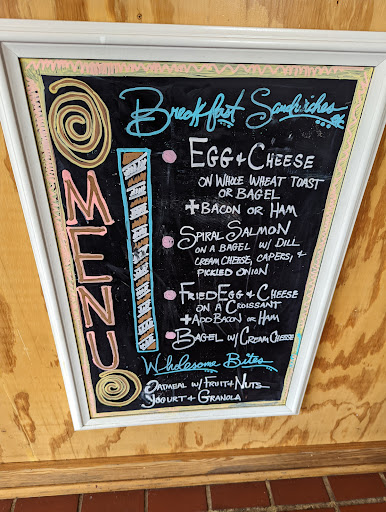 Breakfast Sandwiches
MENU
EGG & CHEESE
ON WHOLE WHEAT TOAST
OR BAGEL
+ BACON OR HAM
SPIRAL SALMON
ON A BAGEL W/ DILL
CREAM CHEESE, CAPERS, &
PICKLED ONION
FRIED EGG & CHEESE
ON A CROISSANT
+ ADD BACON OR HAM
BAGEL W/ CREAM CHEESE
Wholesome Bites
OATMEAL W/ FRUIT & NUTS
YOGURT & GRANOLA